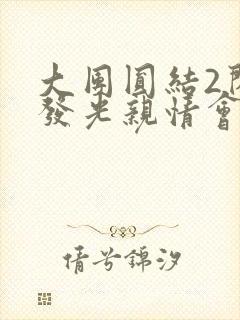 大團圓結2
發光親情會
倩兮錦汐